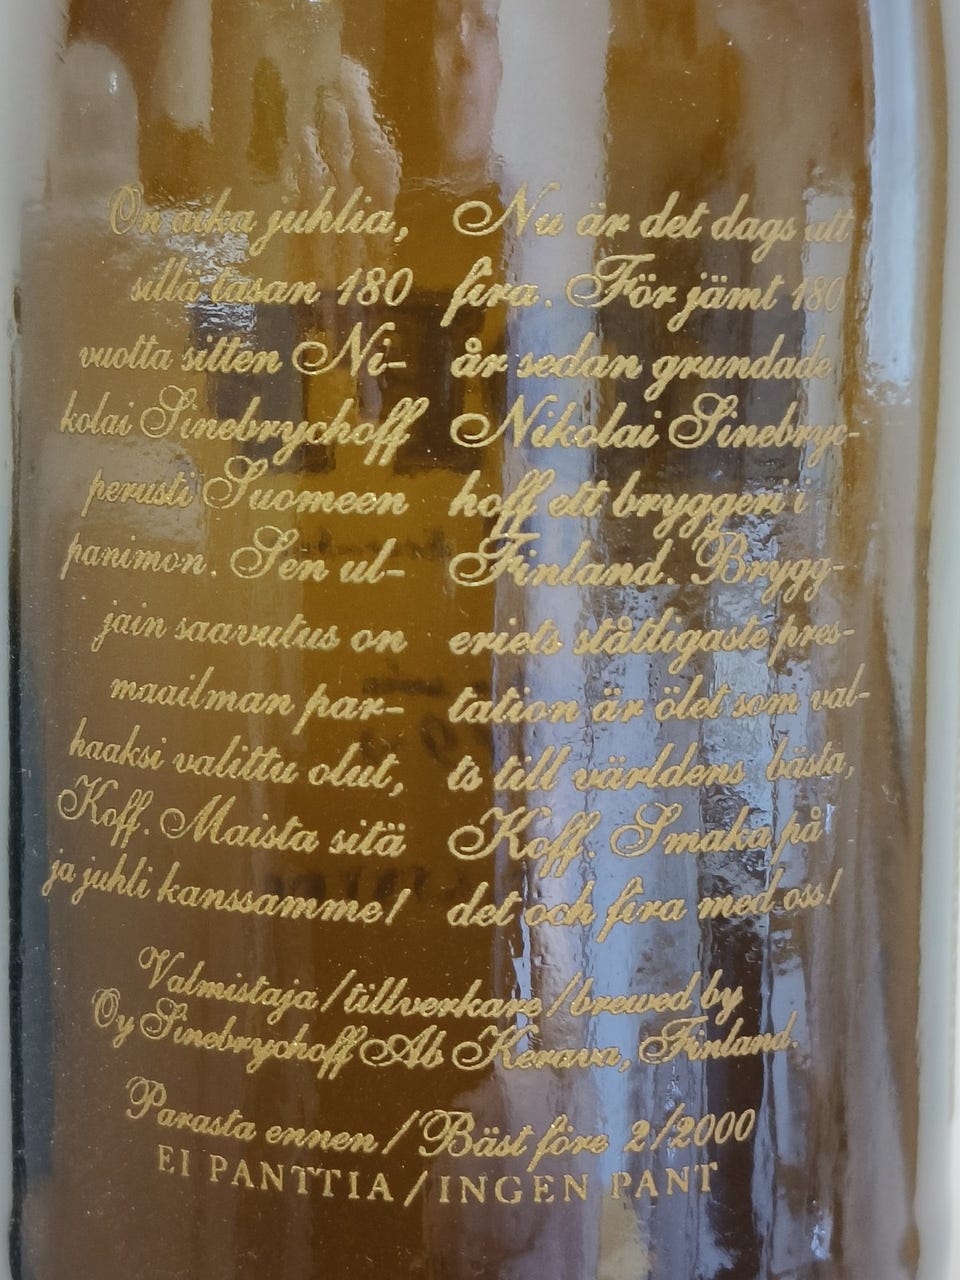 On aika juhlia,
sillä tasan 180
vuotta sitten Ni-
kolai Sinebrychoff
perusti Suomeen
panimon. Sen ul-
jain saavutus on
maailman par-
haaksi valittu olut,
Koff. Maista sitä
ja juhli kanssamme!
Nu är det dags att
fira. För jämt 180
år sedan grundade
Nikolai Sinebryc-
hoff ett bryggeri i
Finland. Brygg-
eriets ståtligaste pres-
tation är ölet som val-
ts till världens bästa,
Koff. Smaka på
det och fira med oss!
Valmistaja / tillverkare / brewed by
Oy Sinebrychoff Ab Kerava, Finland.
Parasta ennen / Bäst före 2/2000
EI PANTTIA / INGEN PANT